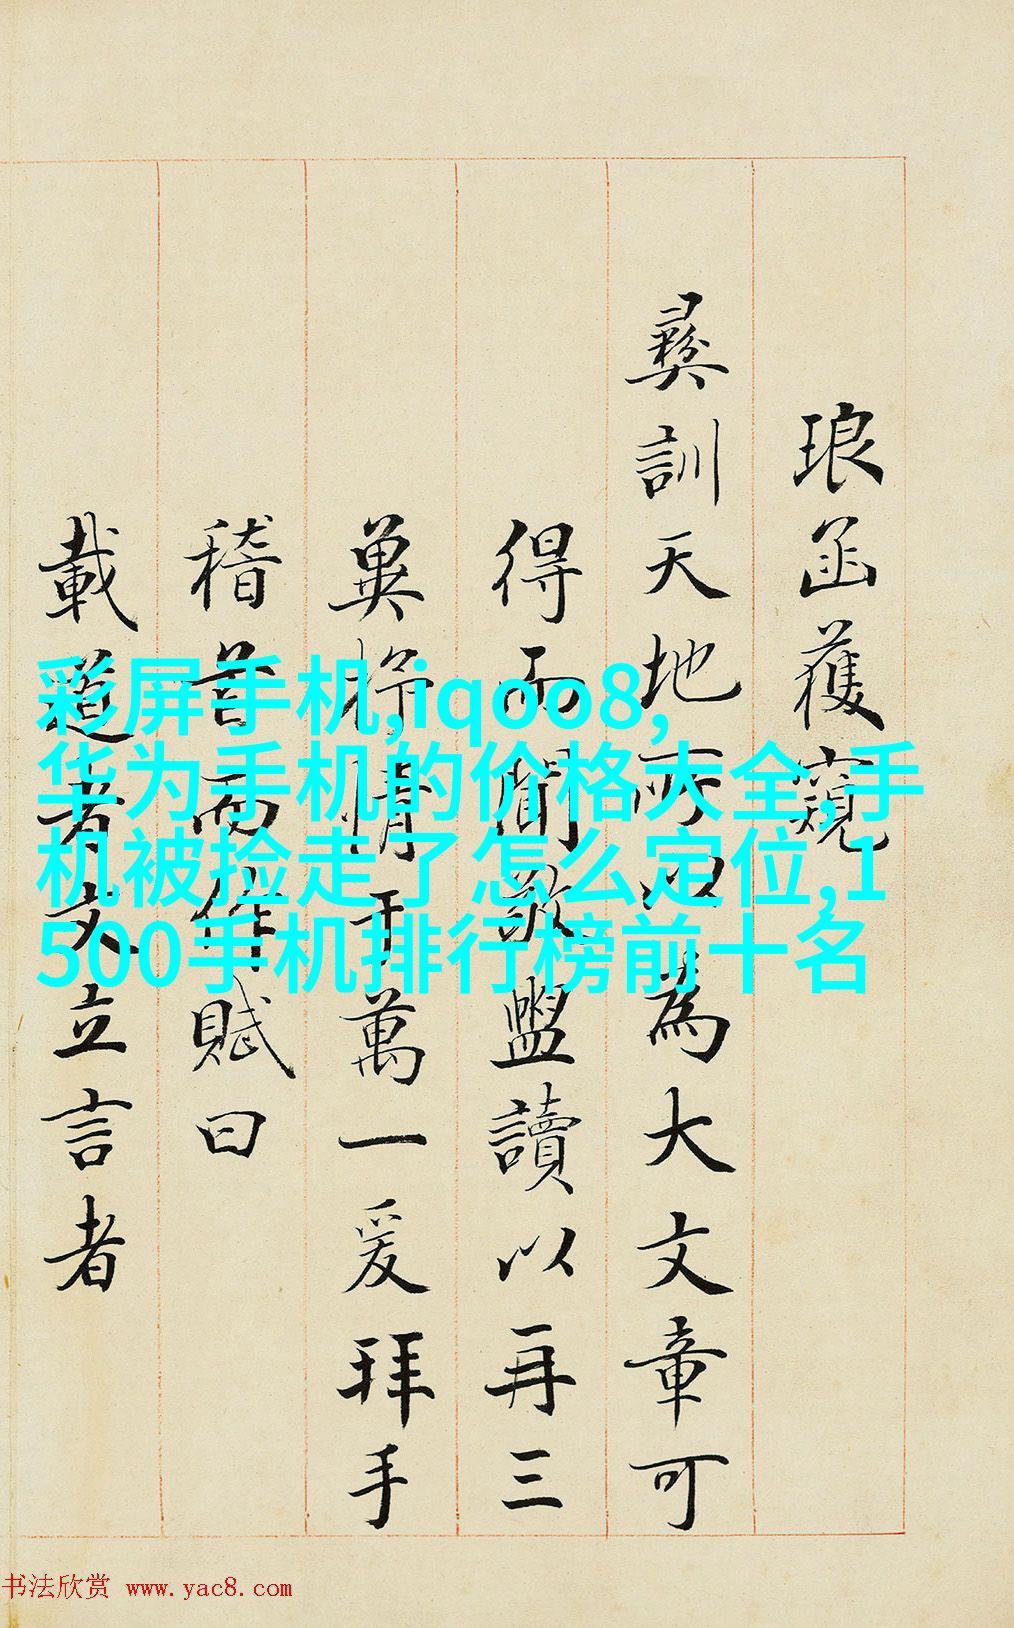 琅函獲窺
彝訓天地所以為大文章可
得而聞敬盥讀以再三
冀抒情于萬一爰拜手
稽首而作賦曰
載道者文立言者
彩屏手机,iqoo8,
华为手机的价格大全,手
机被捡走了怎么定位,1
500手机排行榜前十名
书法欣赏 www.yac8.com